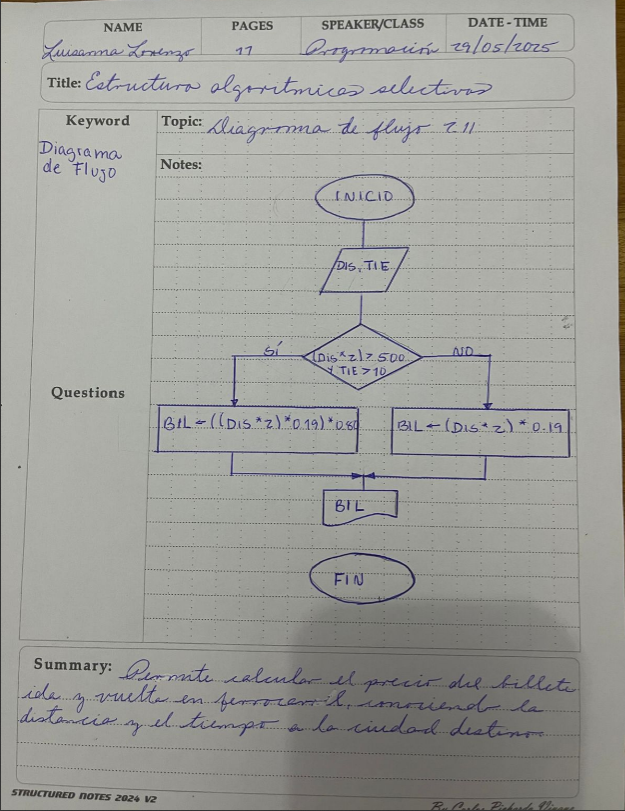 NAME PAGES SPEAKER/CLASS DATE - TIME
Luisanna Lorenzo 11 Programación 29/05/2025
Title: Estructura algoritmicas selectivas
Keyword
Topic: Diagrama de flujo 2.11
Diagrama
de Flujo
Notes:
INICIO
DIS, TIE
SÍ (DIS*2) > 500 NO
Y TIE > 10
Questions
BIL ← ((DIS*2)*0.19)*0.80 BIL ← (DIS*2)*0.19
BIL
FIN
Summary: Permite calcular el precio del billete
ida y vuelta en ferrocarril, conociendo la
distancia y el tiempo a la ciudad destino.
STRUCTURED NOTES 2024 V2
By Carlos Pichardo